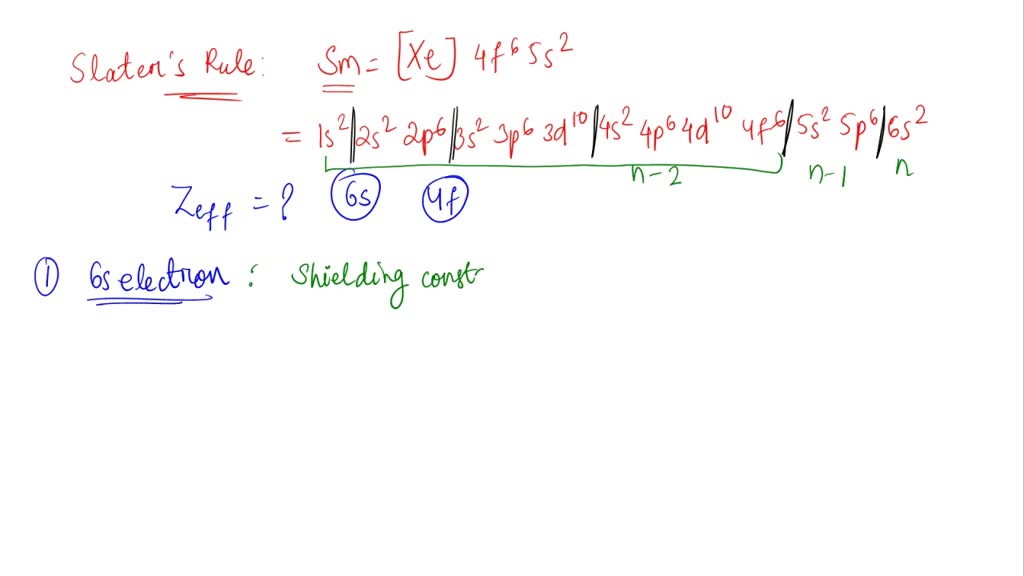 Slater's Rule: Sm = [Xe] 4f⁶ 5s²
= 1s² | 2s² 2p⁶ | 3s² 3p⁶ 3d¹⁰ | 4s² 4p⁶ 4d¹⁰ 4f⁶ | 5s² 5p⁶ | 6s²
n-2 n-1 n
Zeff = ? 6s 4f
① 6s electron : Shielding const